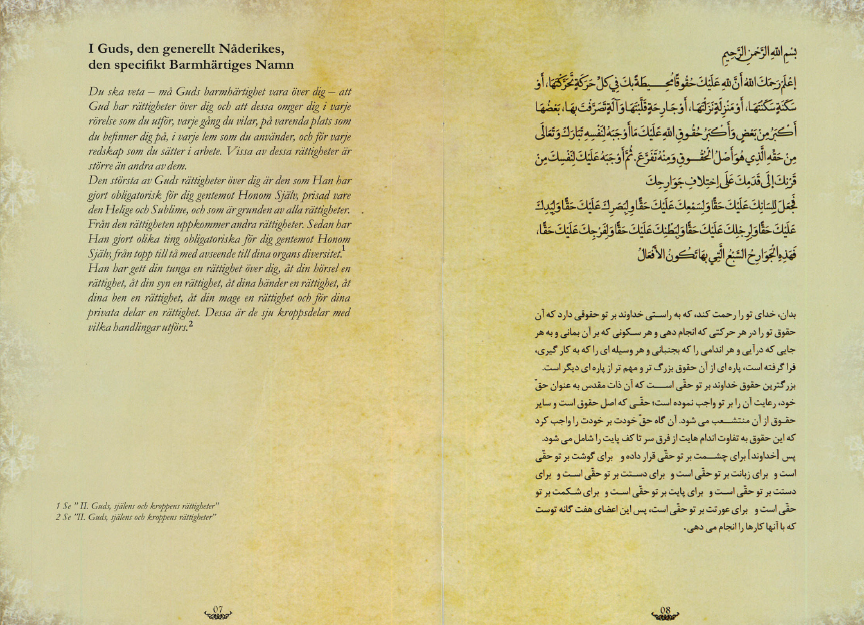 I Guds, den generellt Nåderikes,
den specifikt Barmhärtiges Namn
Du ska veta – må Guds barmhärtighet vara över dig – att
Gud har rättigheter över dig och att dessa omger dig i varje
rörelse som du utför, varje gång du vilar, på varenda plats som
du befinner dig på, i varje lem som du använder, och för varje
redskap som du sätter i arbete. Vissa av dessa rättigheter är
större än andra av dem.
Den största av Guds rättigheter över dig är den som Han har
gjort obligatorisk för dig gentemot Honom Själv, prisad vare
den Helige och Sublime, och som är grunden av alla rättigheter.
Från den rättigheten uppkommer andra rättigheter. Sedan har
Han gjort olika ting obligatoriska för dig gentemot Honom
Själv, från topp till tå med avseende till dina organs diversitet.1
Han har gett din tunga en rättighet över dig, åt din hörsel en
rättighet, åt din syn en rättighet, åt dina händer en rättighet, åt
dina ben en rättighet, åt din mage en rättighet och för dina
privata delar en rättighet. Dessa är de sju kroppsdelar med
vilka handlingar utförs.2
1 Se " II. Guds, själens och kroppens rättigheter"
2 Se "II. Guds, själens och kroppens rättigheter"
07
بِسْمِ اللهِ الرَّحْمنِ الرَّحِيمِ
إعْلَمْ رَحِمَكَ اللهُ أَنَّ لِلهِ عَلَيْكَ حُقُوقًا مُحِـيطَةً بِكَ فِي كُلِّ حَرَكَةٍ تَحَرَّكْتَهَا، أَوْ
سَكَنَةٍ سَكَنْتَهَا، أَوْ مَنْزِلَةٍ نَزَلْتَهَا، أَوْ جَارِحَةٍ قَلَّبْتَهَا وَآلَةٍ تَصَرَّفْتَ بِهَا، بَعْضُهَا
أَكْبَرُ مِنْ بَعْضٍ وَأَكْبَرُ حُقُوقِ اللهِ عَلَيْكَ مَا أَوْجَبَهُ لِنَفْسِهِ تَبَارَكَ وَتَعَالَى
مِنْ حَقِّهِ الَّذِي هُوَ أَصْلُ الْحُقُـوقِ وَمِنْهُ تَفَرَّعَ. ثُمَّ أَوْجَبَهُ عَلَيْكَ لِنَفْسِكَ مِنْ
قَرْنِكَ إلَى قَدَمِكَ عَلَى اخْتِلافِ جَوَارِحِكَ
فَجَعَلَ لِلِسَانِكَ عَلَيْكَ حَقًّا وَلِسَمْعِكَ عَلَيْكَ حَقًّا وَلِبَصَرِكَ عَلَيْكَ حَقًّا وَلِيَدِكَ
عَلَيْكَ حَقًّا وَلِرِجْلِكَ عَلَيْكَ حَقًّا وَلِبَطْنِكَ عَلَيْكَ حَقًّا وَلِفَرْجِكَ عَلَيْكَ حَقًّا،
فَهَذِهِ الْجَوَارِحُ السَّبْعُ الَّتِي بِهَا تَكُونُ الأَفْعَالُ
بدان، خدای تو را رحمت کند، که به راستی خداوند بر تو حقوقی دارد که آن
حقوق تو را در هر حرکتی که انجام دهی و هر سکونی که بر آن بمانی و به هر
جایی که درآیی و هر اندامی را که بجنبانی و هر وسیله ای را که به کار گیری،
فرا گرفته است، پاره ای از آن حقوق بزرگ تر و مهم تر از پاره ای دیگر است.
بزرگترین حقوق خداوند بر تو حقّی است که آن ذات مقدس به عنوان حقّ
خود، رعایت آن را بر تو واجب نموده است؛ حقّی که اصل حقوق است و سایر
حقوق از آن منتشعب می شود. آن گاه حقّ خودت بر خودت را واجب کرد
که این حقوق به تفاوت اندام هایت از فرق سر تا کف پایت را شامل می شود.
پس [خداوند] برای چشمت بر تو حقّی قرار داده و برای گوشت بر تو حقّی
است و برای زبانت بر تو حقّی است و برای دستت بر تو حقّی است و برای
دستت بر تو حقّی است و برای پایت بر تو حقّی است و برای شکمت بر تو
حقّی است و برای عورتت بر تو حقّی است، پس این اعضای هفت گانه توست
که با آنها کارها را انجام می دهی.
08